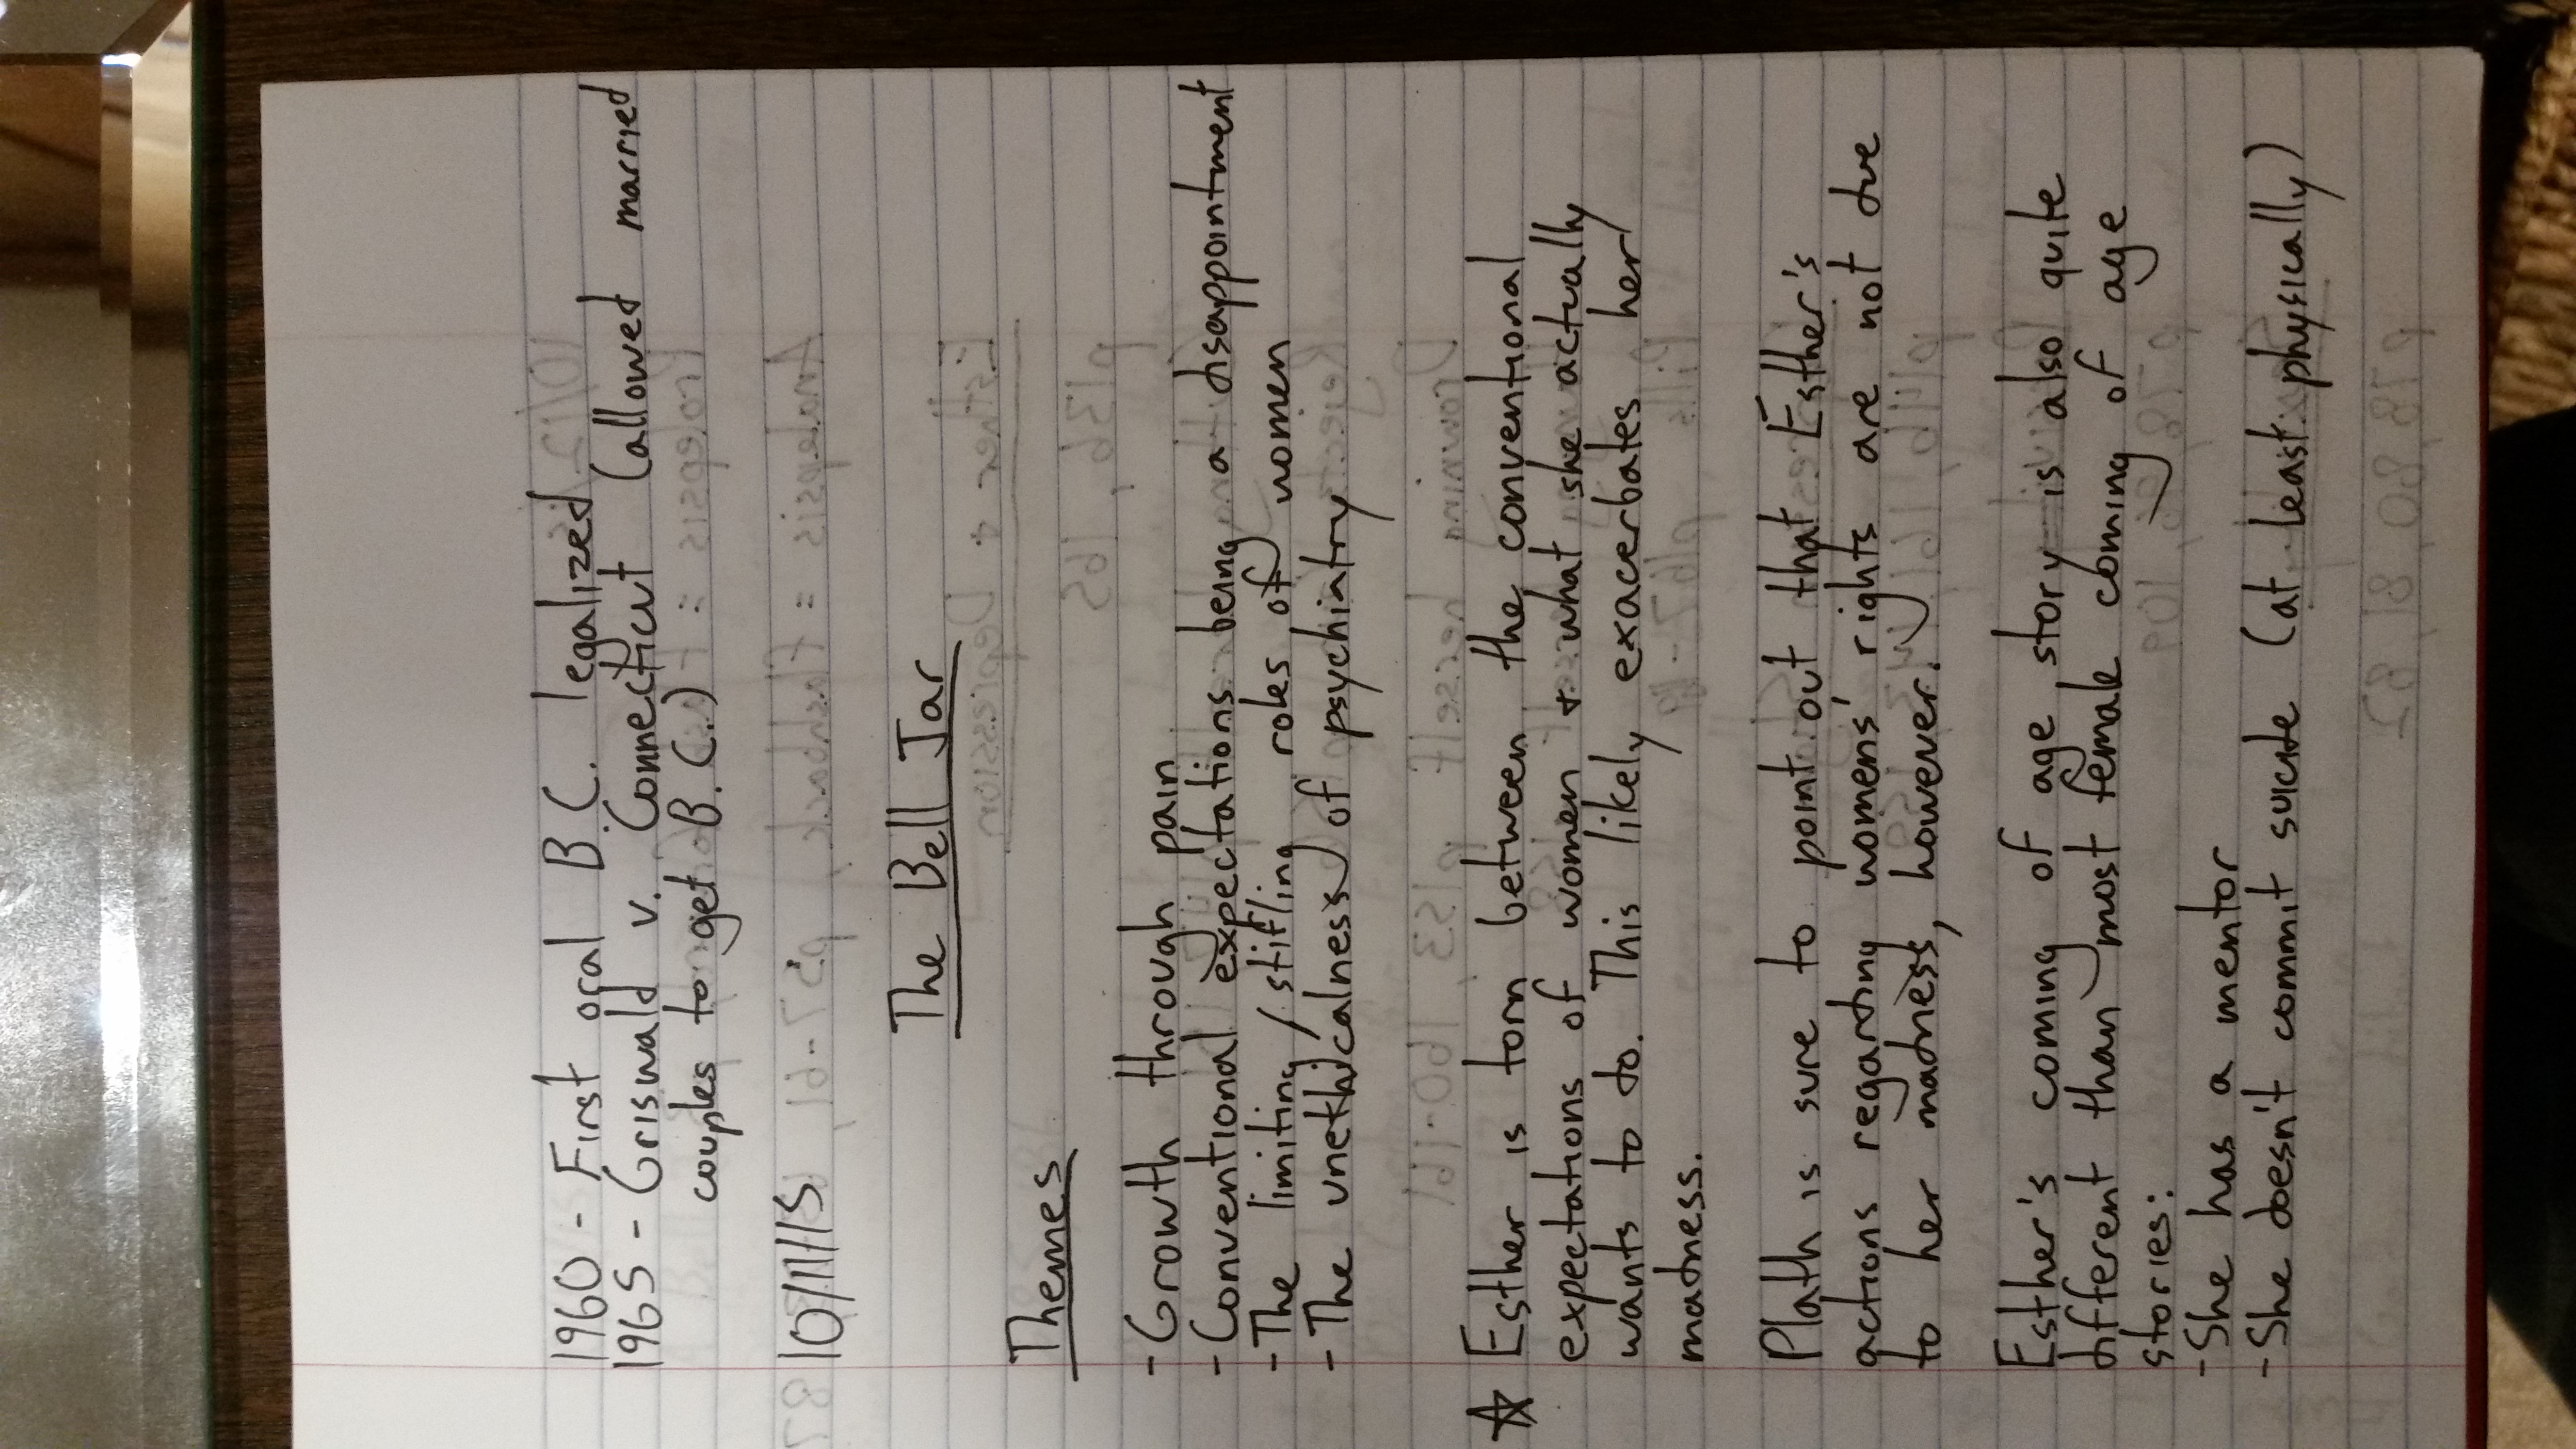 1960 - First oral B.C. legalized
1965 - Griswald v. Connecticut (allowed married
couples to get B.C.)
10/11/15
The Bell Jar
Themes
- Growth through pain
- Conventional expectations being a disappointment
- The limiting/stifling roles of women
- The unethicalness of psychiatry
☆ Esther is torn between the conventional
expectations of women + what she actually
wants to do. This likely exacerbates her
madness.
Plath is sure to point out that Esther's
actions regarding womens' rights are not due
to her madness, however.
Esther's coming of age story is also quite
different than most female coming of age
stories:
- She has a mentor
- She doesn't commit suicide (at least physically)